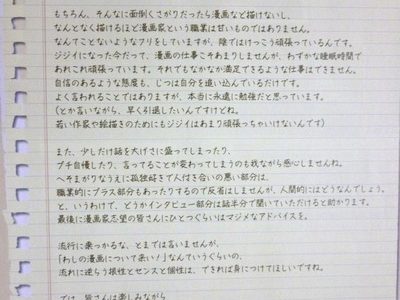 もちろん、そんなに面倒くさがりだったら漫画など描けないし、
なんとなく描けるほど漫画家という職業は甘いものではありません。
なんてことないようなフリをしていますが、陰ではけっこう頑張っているんです。
ジジイになった今だって、漫画の仕事こそあまりしませんが、わずかな睡眠時間で
あれこれ頑張っています。それでもなかなか満足できるような仕事はできません。
自信のあるような態度も、じつは自分を追い込んでいるだけです。
よく言われることではありますが、本当に永遠に勉強だと思っています。
(とか言いながら、早く引退したいんですけどね。
若い作家や絵描きのためにもジジイはあまり頑張っちゃいけないんです)
また、少しだけ話を大げさに盛ってしまったり、
プチ自慢したり、言ってることが変わってしまうのも我ながら感心しませんね。
へそまがりなうえに孤独好きで人付き合いの悪い部分は、
職業的にプラス部分もあったりするので反省はしませんが、人間的にはどうなんでしょう。
と、いうわけで、どうかインタビュー部分は話半分で聞いていただけると助かります。
最後に漫画家志望の皆さんにひとつくらいはマジメなアドバイスを。
流行に乗っかるな、とまでは言いませんが、
「わしの漫画について来い!」なんていうぐらいの、
流れに逆らう根性とセンスと個性は、できれば身につけてほしいですね。
では、皆さんは楽しみながら